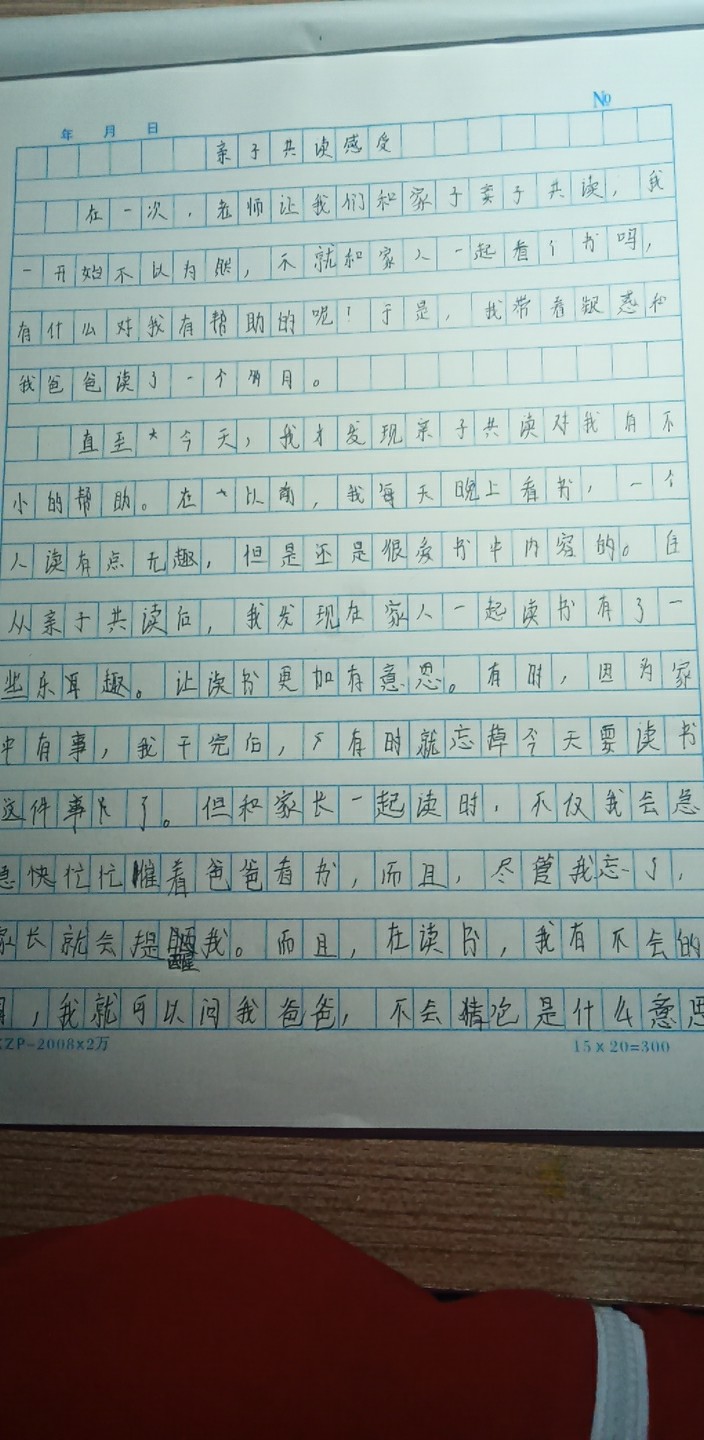 №
年 月 日
亲子共读感受
在一次，老师让我们和家子亲子共读，我
一开始不以为然，不就和家人一起看个书吗，
有什么对我有帮助的呢！于是，我带着疑惑和
我爸爸读了一个多月。
直至今天，我才发现亲子共读对我有不
小的帮助。在以前，我每天晚上看书，一个
人读有点无趣，但是还是很爱书中内容的。自
从亲子共读后，我发现在家人一起读书有了一
些乐耳趣。让读书更加有意思。有时，因为家
中有事，我干完后，有时就忘掉今天要读书
这件事了。但和家长一起读时，不仅我会急
急快忙忙催着爸爸看书，而且，尽管我忘了，
家长就会提醒我。而且，在读书，我有不会的
，我就可以问我爸爸，不会猜它是什么意思
ZP-2008×2万
15×20=300